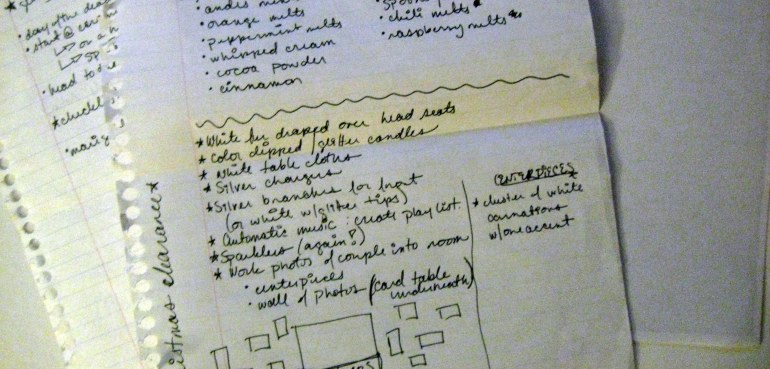 day of the dead
start @
on a h
sp
head to d
checkl
marig
andes
orange melts
peppermint melts
whipped cream
cocoa powder
cinnamon
spoon
chili melts
raspberry melts
*White fur draped over head seats
* Color dipped/glitter candles
* White table cloths
* Silver chargers
*Silver branches for front
(or white w/glitter tips)
* Automatic music: create playlist
*Sparklers (again?)
* Work photos of couple into room
• centerpieces
• wall of photos (card table
underneath)
CENTERPIECES
* cluster of white
carnations
w/one accent
istmas clearance*